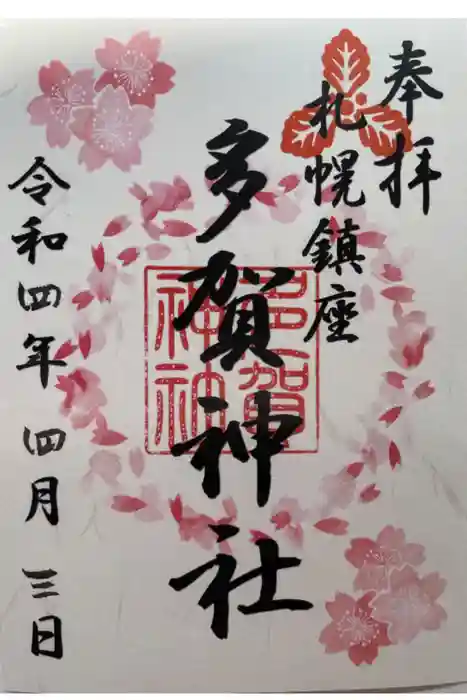 奉拝
札幌鎮座
多賀神社
多賀
神社
令和四年 四月 三日